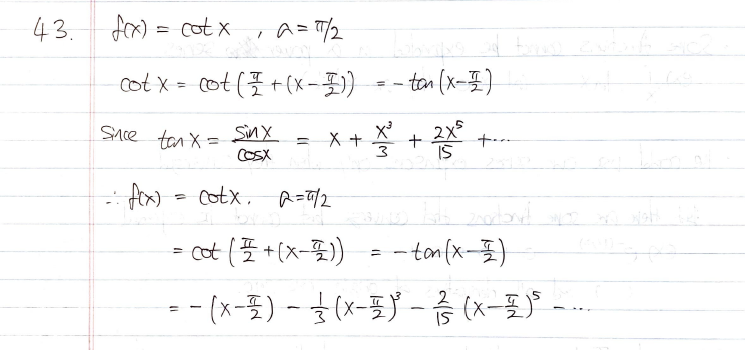 43. f(x) = cot x , a = π/2
cot x = cot(π/2 + (x-π/2)) = - tan(x-π/2)
Since tan x = sin x/cos x = x + x³/3 + 2x⁵/15 + ...
∴ f(x) = cot x. a = π/2
= cot(π/2 + (x-π/2)) = - tan(x-π/2)
= - (x-π/2) - 1/3 (x-π/2)³ - 2/15 (x-π/2)⁵ - ...